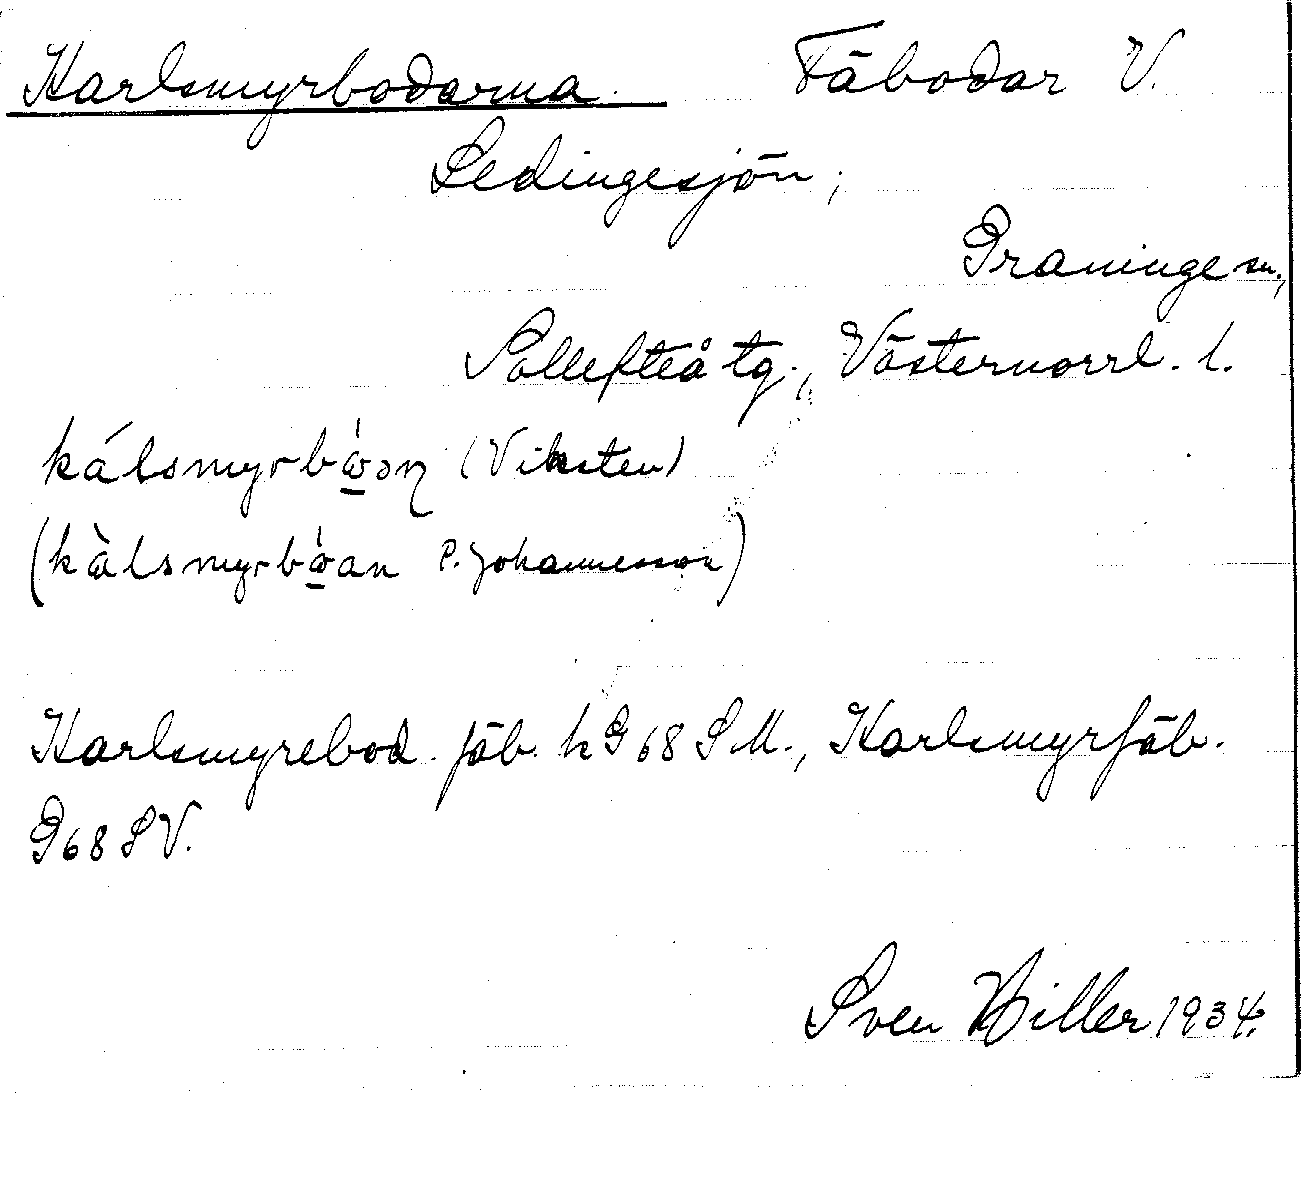 Karlsmyrbodarna. Fäbodar V.
Ledingesjön,
Graninge sn.,
Sollefteå tg., Västernorrl. l.
kálsmyrbώ̲ɔn (Viksten)
(kàlsmyrbώ̲an P. Johannesson)
Karlsmyrebod. fäb. k G 68 SM., Karlsmyrfäb.
G 68 SV.
Sven Hiller 1934.